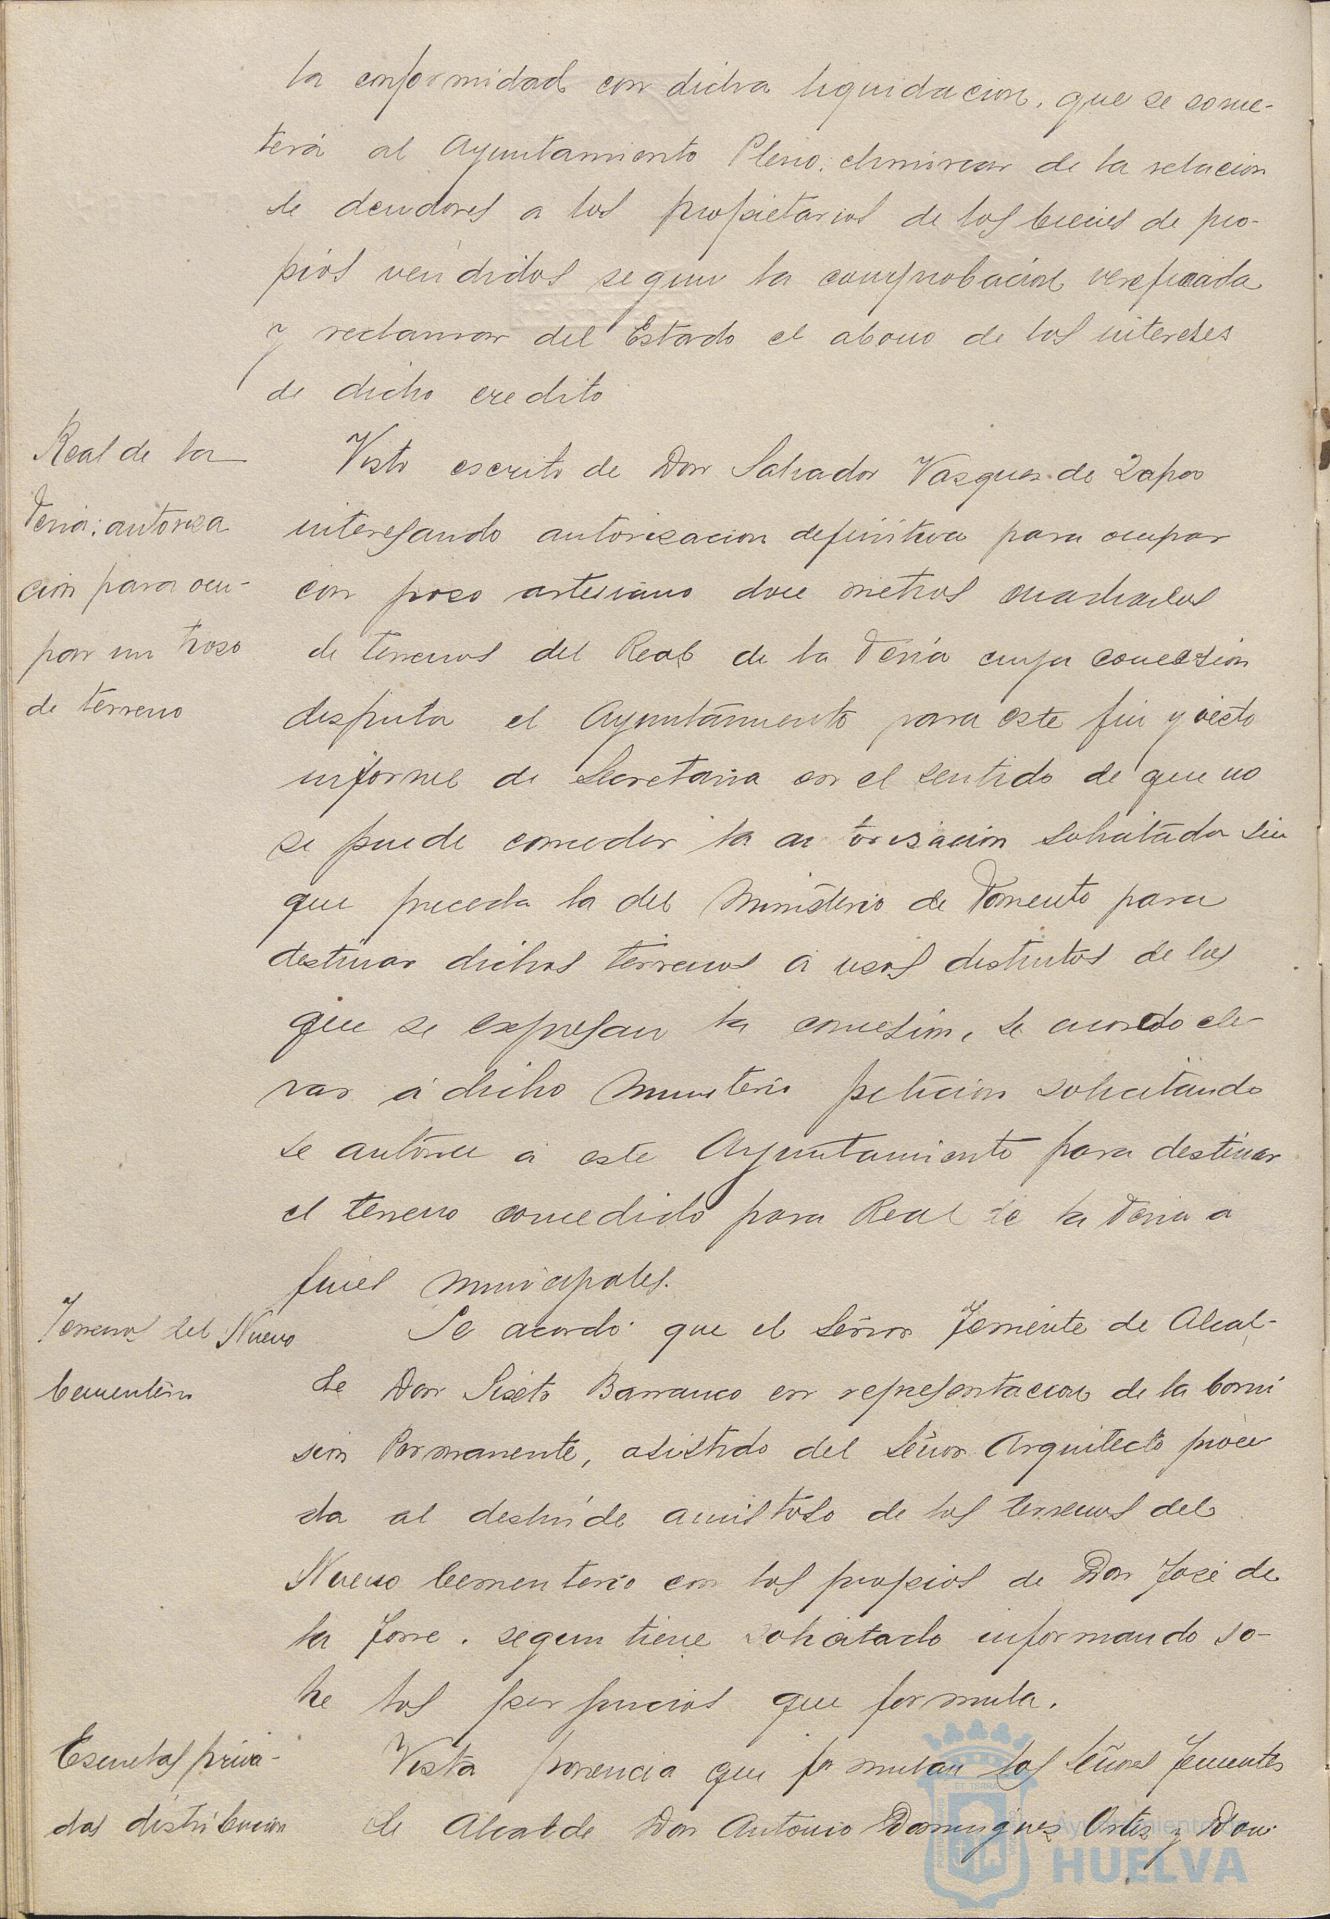 la conformidad con dicha liquidacion, que se some-
terá al Ayuntamiento Pleno; eliminar de la relacion
de deudores a los propietarios de los bienes de pro-
pios vendidos segun la comprobacion verificada
y reclamar del Estado el abono de los intereses
de dicho credito
Real de la
Feria: autoriza
cion para ocu-
par un trozo
de terreno
Visto escrito de Don Salvador Vazquez de Zafra
interesando autorizacion definitiva para ocupar
con pozo artesiano doce metros cuadrados
de terrenos del Real de la Feria cuya concesion
disfruta el Ayuntamiento para este fin y visto
informe de Secretaria en el sentido de que no
se puede conceder la autorizacion solicitada sin
que preceda la del Ministerio de Fomento para
destinar dichos terrenos a usos distintos de los
que se expresan la concesión, se acordo ele-
var á dicho Ministerio peticion solicitando
se autorice a este Ayuntamiento para destinar
el terreno concedido para Real de la Feria a
fines municipales.
Terrenos del Nuevo
Cementerio
Se acordó que el Señor Teniente de Alcal-
de Don Sixto Barranco en representacion de la Comi
sion Permanente, asistido del Señor Arquitecto proce
da al deslinde amistoso de los terrenos del
Nuevo Cementerio con los propios de Don José de
la Torre, segun tiene solicitado informando so-
bre los perjuicios que formula.
Escuelas priva-
das distribucion
Vista ponencia que formulan los Señores Tenientes
de Alcalde Don Antonio Dominguez Ortiz y Don
Ayuntamiento
HUELVA